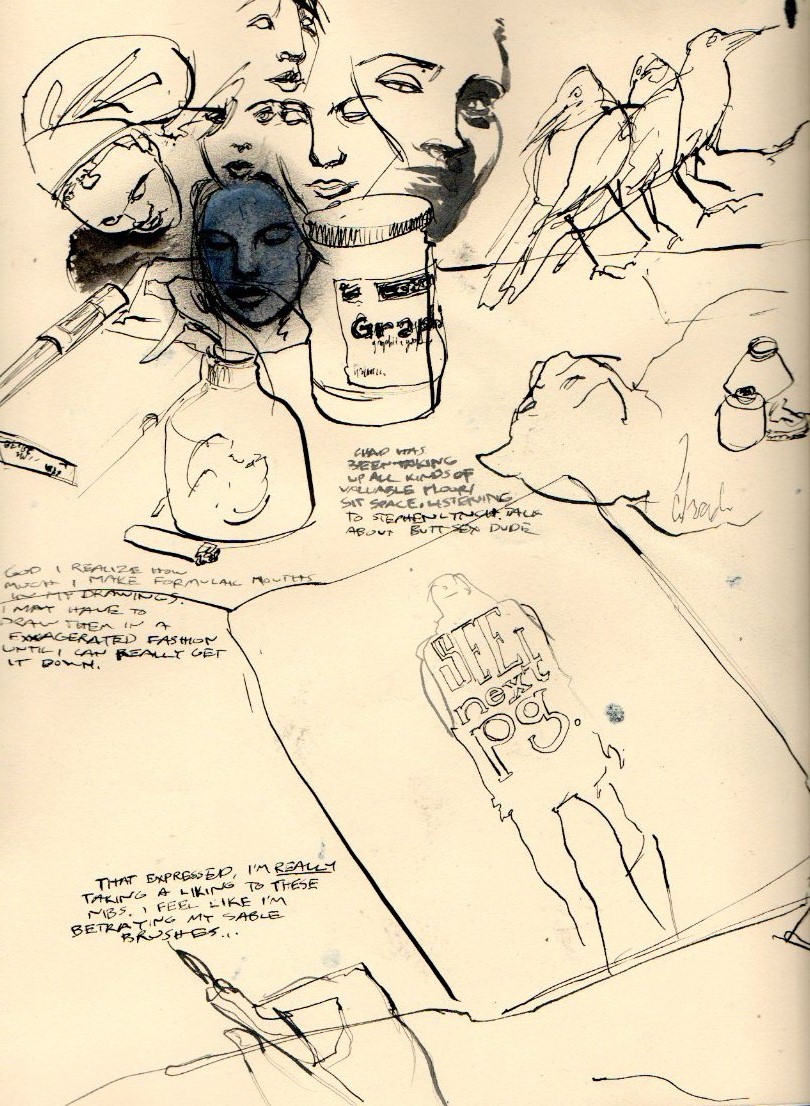 Grap
CHAD HAS
BEEN TAKING
UP ALL KINDS OF
VALUABLE FLOOR/
SIT SPACE, LISTENING
TO STEPHEN LYNCH TALK
ABOUT BUTT SEX DUDE
GOD I REALIZE HOW
MUCH I MAKE FORMULAIC MOUTHS
IN MY DRAWINGS.
I MAY HAVE TO
DRAW THEM IN A
EXXAGERATED FASHION
UNTIL I CAN REALLY GET
IT DOWN.
SEE
next
pg.
THAT EXPRESSED, I'M REALLY
TAKING A LIKING TO THESE
NIBS. I FEEL LIKE I'M
BETRAYING MY SABLE
BRUSHES...